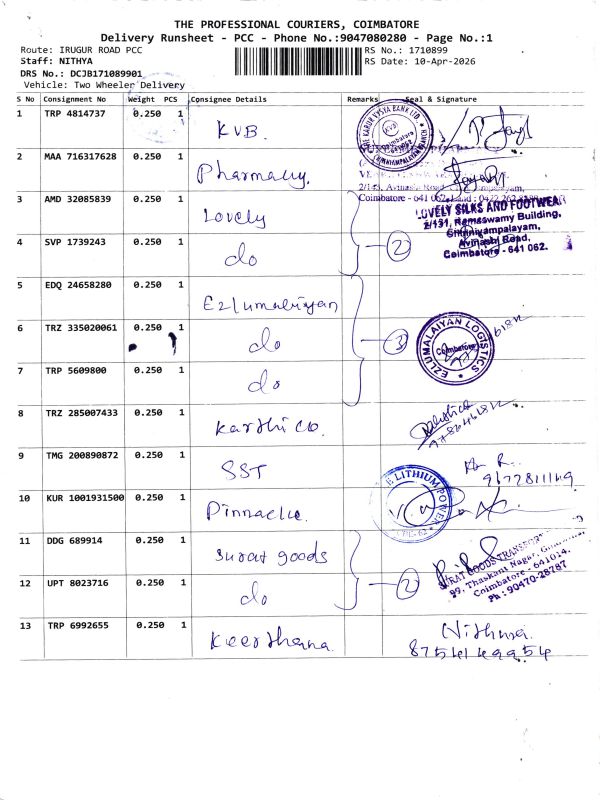 THE PROFESSIONAL COURIERS, COIMBATORE
Delivery Runsheet - PCC - Phone No.:9047080280 - Page No.:1
Route: IRUGUR ROAD PCC
RS No.: 1710899
Staff: NITHYA
RS Date: 10-Apr-2026
DRS No.: DCJB171089901
Vehicle: Two Wheeler Delivery
S No Consignment No Weight PCS Consignee Details Remarks Seal & Signature
1 TRP 4814737 0.250 1 KVB
THE KARUR VYSYA BANK LTD.
KVB
Coimbatore
CHINNIYAMPALAYAM
2 MAA 716317628 0.250 1 Pharmacy
2/143, Avinashi Road
Coimbatore - 641 062.
3 AMD 32085839 0.250 1 Lovely
LOVELY SILKS AND FOOTWEAR
2/131, Ramaswamy Building,
Chinniyampalayam,
Avinashi Road,
Coimbatore - 641 062.
4 SVP 1739243 0.250 1 do
2
5 EDQ 24658280 0.250 1 Ezlumaliyan
6 TRZ 335020061 0.250 1 do
3
EZLUMALAIYAN LOGISTICS
Coimbatore
7 TRP 5609800 0.250 1 do
8 TRZ 285007433 0.250 1 Karthi co.
9 TMG 200890872 0.250 1 SST
10 KUR 1001931500 0.250 1 Pinnacle
LITHIUM POWER
11 DDG 689914 0.250 1 Surat goods
12 UPT 8023716 0.250 1 do
2
SURAT GOODS TRANSPORT
99, Thaskant Nagar,
Coimbatore - 641014.
Ph : 90470-28787
13 TRP 6992655 0.250 1 Keerthana
Nithya